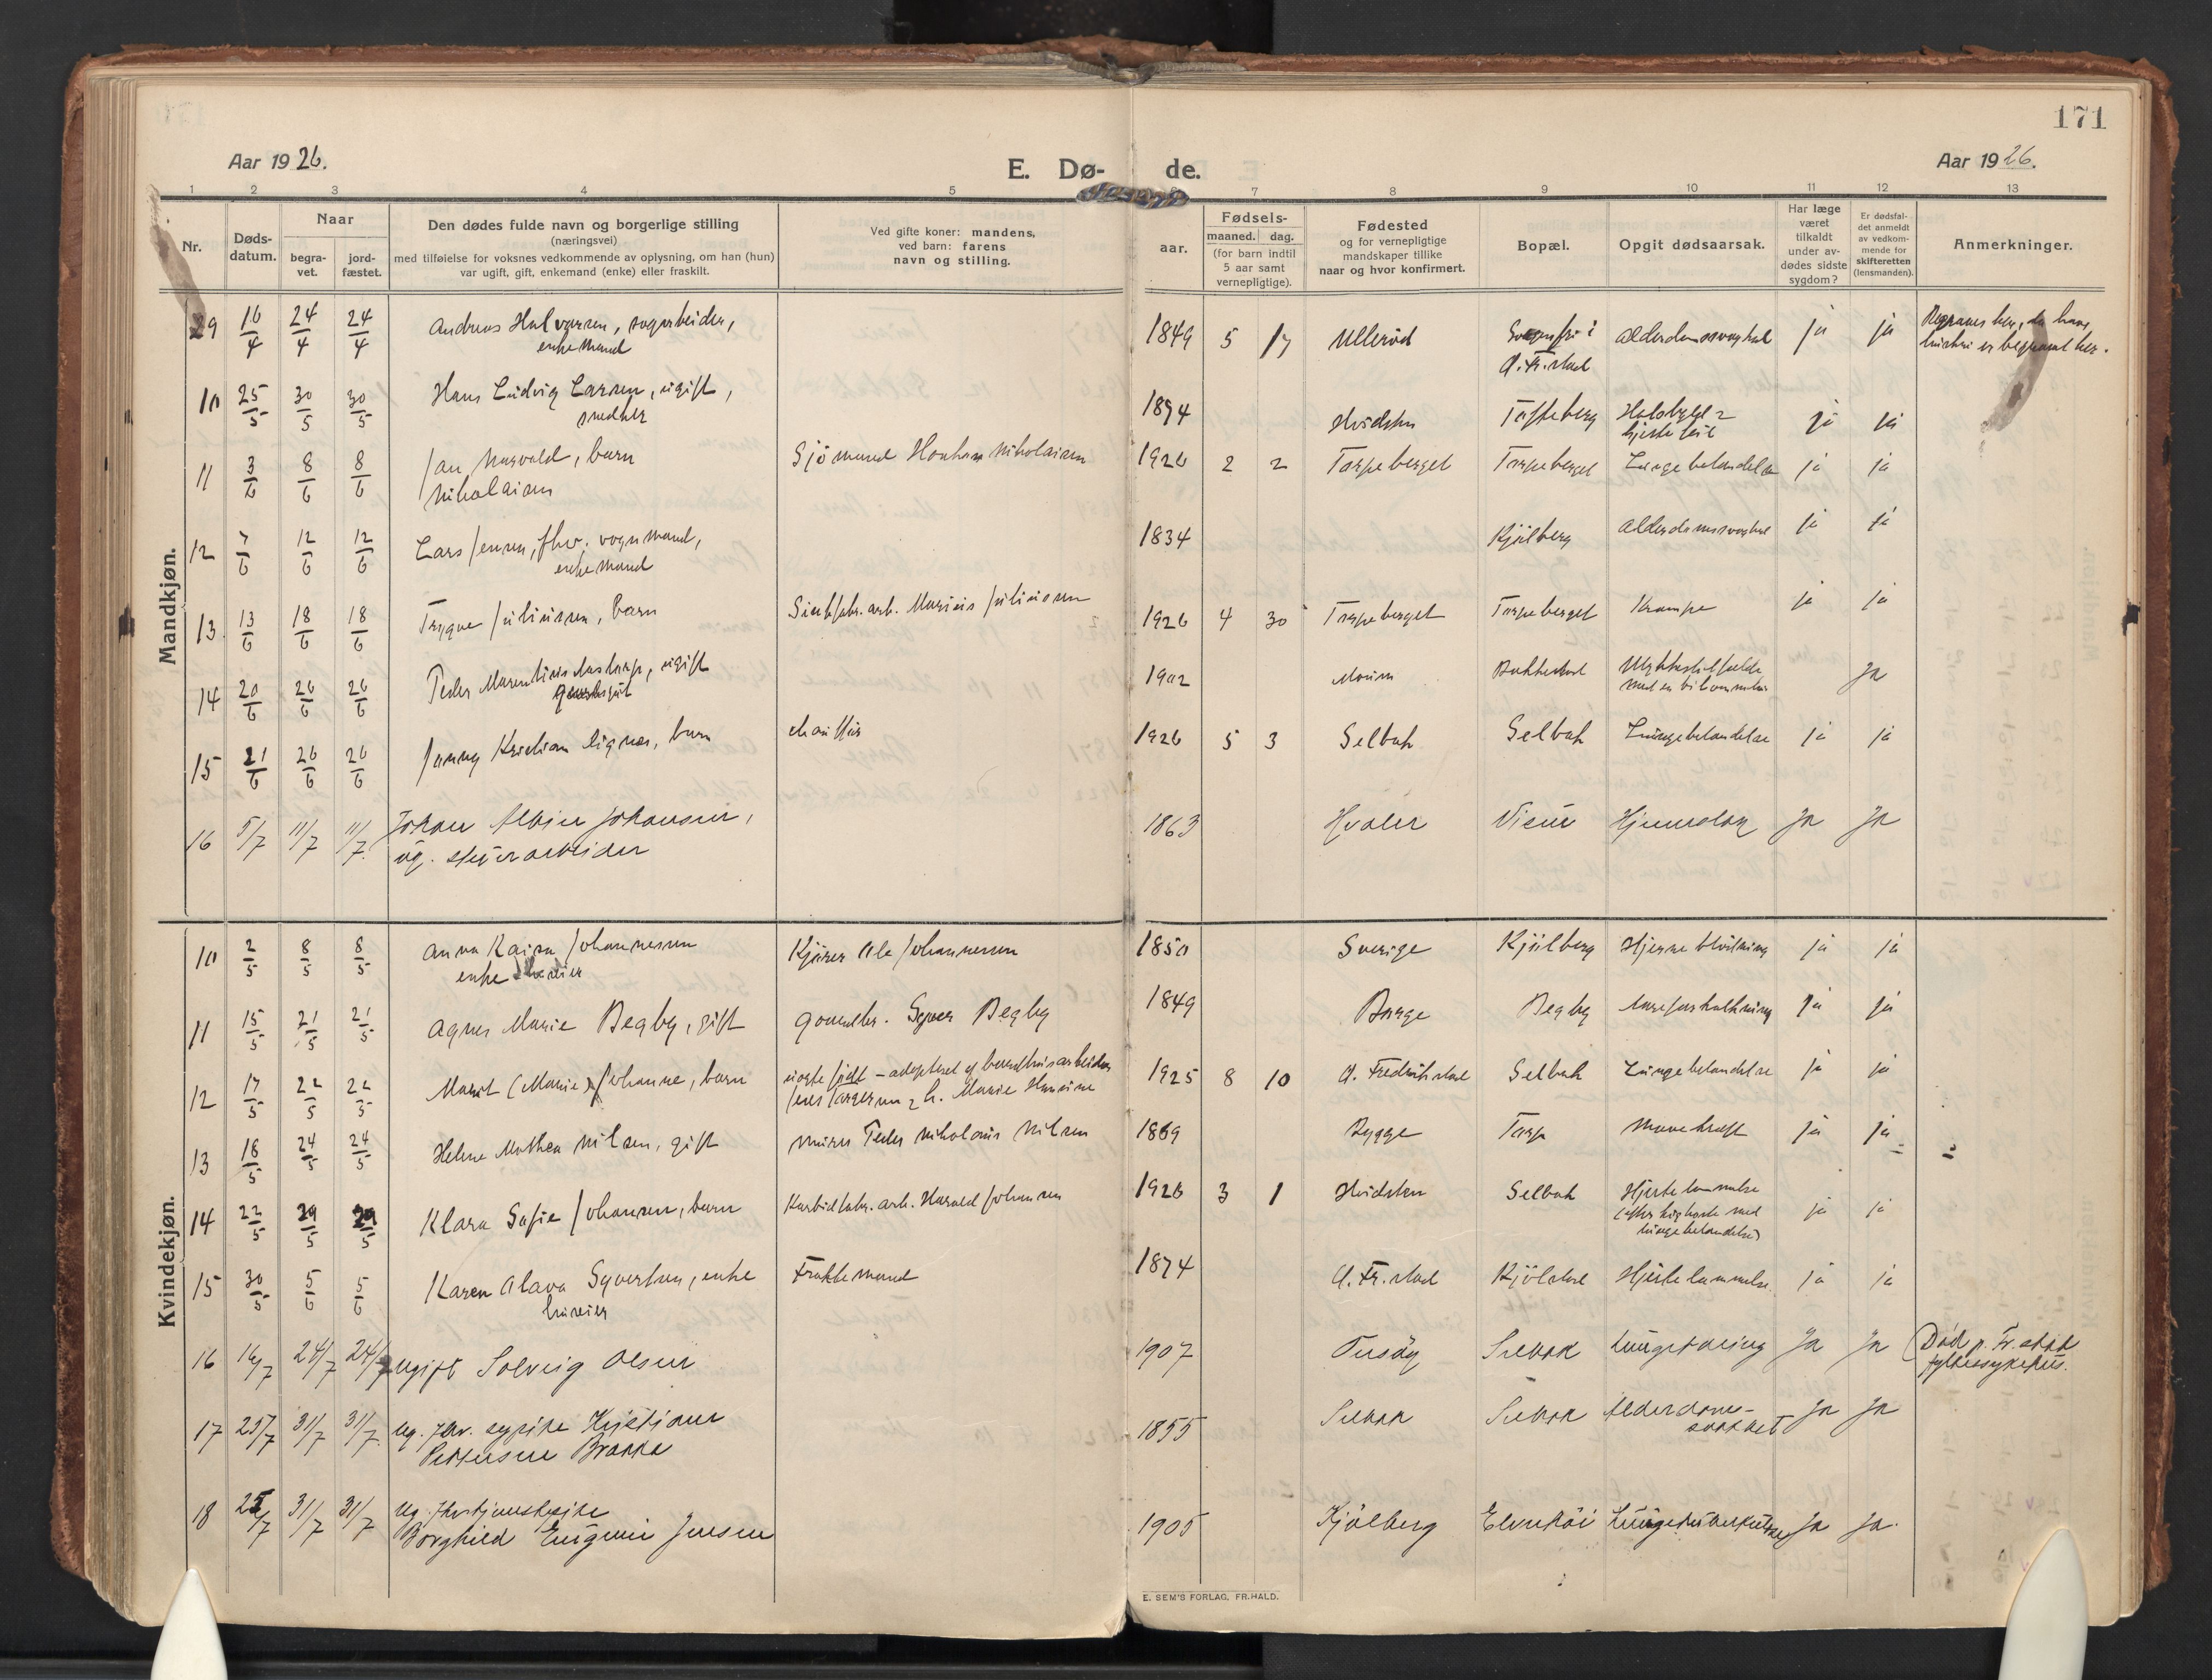 171
Aar 1926.
E. Dø- de.
Aar 1926.
1 2 3 4 5 6 7 8 9 10 11 12 13
Nr.
Døds-
datum.
Naar
begra-
vet.
jord-
fæstet.
Den dødes fulde navn og borgerlige stilling
(næringsvei)
med tilføielse for voksnes vedkommende av oplysning, om han (hun)
var ugift, gift, enkemand (enke) eller fraskilt.
Ved gifte koner: mandens,
ved barn: farens
navn og stilling.
aar.
Fødsels-
maaned. dag.
(for barn indtil
5 aar samt
vernepligtige).
Fødested
og for vernepligtige
mandskaper tillike
naar og hvor konfirmert.
Bopæl.
Opgit dødsaarsak.
Har læge
været
tilkaldt
under av-
dødes sidste
sygdom?
Er dødsfal-
det anmeldt
av vedkom-
mende for
skifteretten
(lensmanden).
Anmerkninger.
Mandkjøn.
29 16/4 24/4 24/4 Andreas Halvorsen,
enkemand
1849 5 17 Ullerød
G.Fr.stad
Alderdomssvaghet ja ja
er begravet her.
10 25/5 30/5 30/5 Hans Ludvig Larsen, ugift,
snedker
1894 Hvidsten Tofteberg
hjertefeil ja ja
11 3/6 8/6 8/6 Jan Narvald, barn
Nikolaisen
Sjömand Nikolaisen 1926 2 2 Torpeberget Torpeberget Lungebetændelse ja ja
12 7/6 12/6 12/6 Lars Jensen, fhv. vognmand,
enkemand
1834 Kjølberg Alderdomssvaghet ja ja
13 13/6 18/6 18/6 Trygve Juliussen, barn
Marius Juliussen 1926 4 30 Torpeberget Torpeberget Krampe ja ja
14 20/6 26/6 26/6 Peder ugift
1902 Moum
Ulykkestilfælde
med en bil ja
15 21/6 26/6 26/6 Jonny Kristian barn
chauffør 1926 5 3 Selbak Selbak Lungebetændelse ja ja
16 5/7 11/7 11/7 Johan Albin Johansen,
ug. stenarbeider
1863 Hvaler Hjerneslag Ja Ja
Kvindekjøn.
10 2/5 8/5 8/5 Anna Kaisa Johannesen
enke
Kjører Ole Johannesen 1850 Sverige Kjølberg Hjerneblødning ja ja
11 15/5 21/5 21/5 Agnes Marie Begby, gift
gaardbr. Syver Begby 1849 Borge Begby Aareforkalkning ja ja
12 17/5 22/5 22/5 Marit (Marie) Johanne, barn
adopteret af
h. Marie Hansine
1925 8 10 G. Fredrikstad Selbak Lungebetændelse ja ja
13 18/5 24/5 24/5 Helene Mathea Nilsen, gift
murer Peder Nikolaus Nilsen 1869 Rygge Torp Mavekræft ja ja
14 22/5 29/5 29/5 Klara Sofie Johansen, barn
Karbidfabr.arb. Harald Johansen 1926 3 1 Hvidsten Selbak Hjertelammelse
(efter kighoste med
lungebetændelse) ja ja
15 30/5 5/6 5/6 Karen Olava Syvertsen, enke
huseier
Fraktemand 1874 G.Fr.stad Kjölstad Hjertelammelse. ja ja
16 16/7 24/7 24/7 ugift Solveig Olsen
1907 Selbak Lungetæring Ja Ja (Død p. Fr.stad
fylkessykehus.
17 25/7 31/7 31/7 ug. fhv. sypike Kristiane
Pettersen Brække
1855 Selbak Selbak Alderdoms-
svakhet Ja Ja
18 25/7 31/7 31/7 ug.
Borghild Eugenie Jensen
1905 Kjølberg Lungetuberkulose Ja Ja.
E. SEM'S FORLAG, FR.HALD.